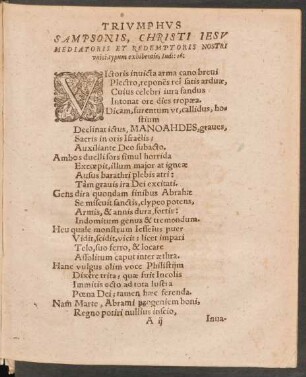 TRIVMPHVS
SAMPSONIS, CHRISTI IESV
MEDIATORIS ET REDEMPTORIS NOSTRI
typum exhibentis, Iudic: 16.
VIctoris inuicta arma cano breui
Plectro, reponēs rei satis arduæ,
Cuius celebri iura sandua
Intonat ore dies tropæa.
Dicam, furentum vt, callidus, hostium
Declinat ictus, MANOAHDES, graues,
Sacris in oris Israëlis:
Auxiliante Deo subacto.
Ambos duelli fors simul horrida
Excæpit, illum major at igneæ
Ausus barathri plebis atri:
Tàm grauis ira Dei excitati.
Gens dira quondam finibus Abrahæ
Se miscuit sanctis, clypeo potens,
Armis, & annis dura, fortis:
Indomitum genus & tremendum.
Heu quale monstrum Iesseius puer
Vidit, scidit, vicit: licet impari
Telo, suo ferro, & locare
Assolitum caput inter æthra.
Hanc vulgus olim voce Philistijm
Dixere trita, quæ fuit Incolis
Immitis ecto ad tota lustra
Pœna Dei: tamen hæc ferenda.
Nam Marte, Abrami progeniem boni,
Regno potiri nullius inscio,
A ij
Inua-